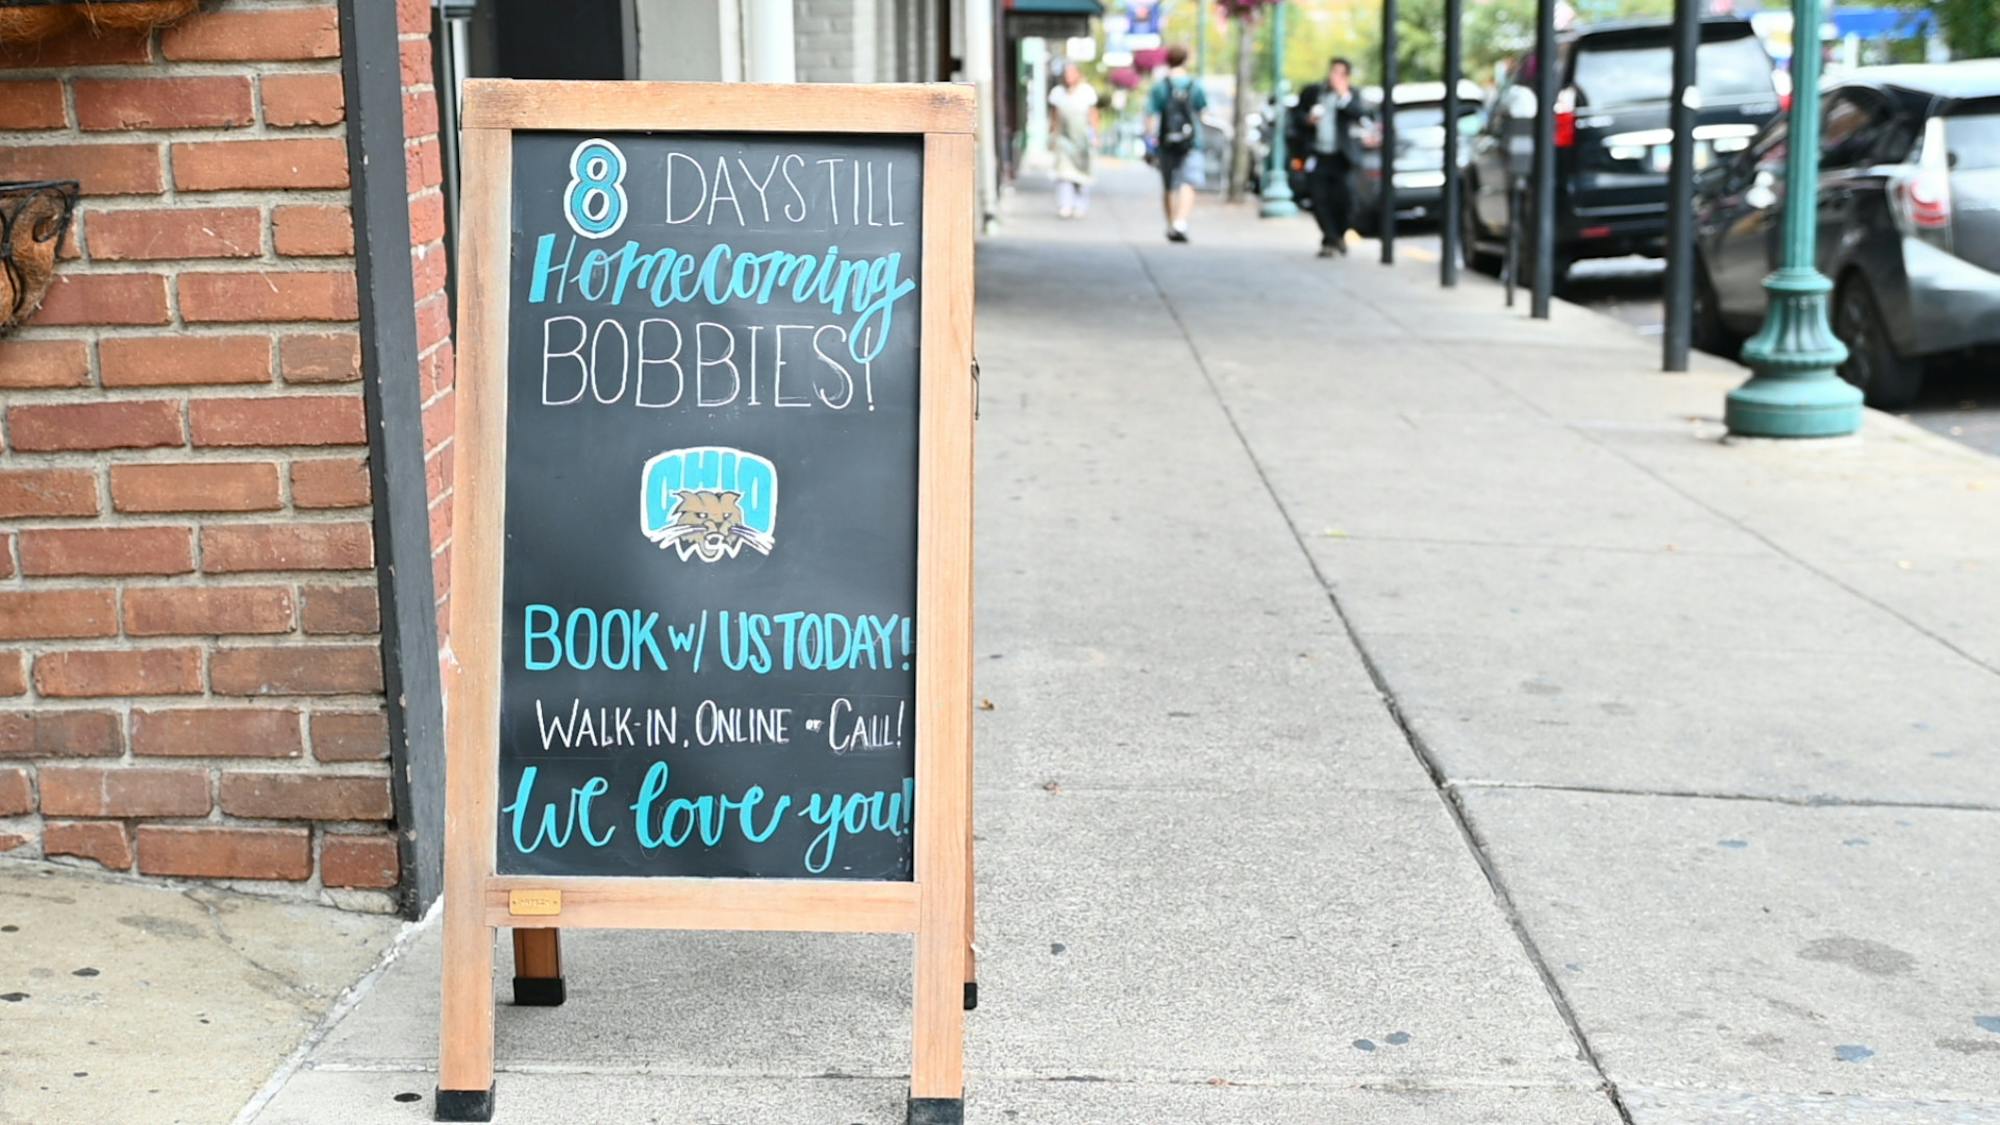 8 DAYS TILL
Homecoming
BOBBIES!
OHIO
BOOK w/ US TODAY!
WALK-IN, ONLINE or CALL!
We love you!